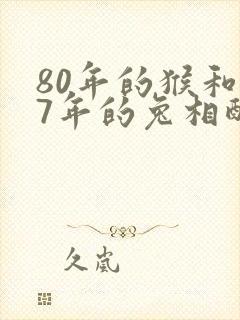 80年的猴和
7年的兔相配
久岚